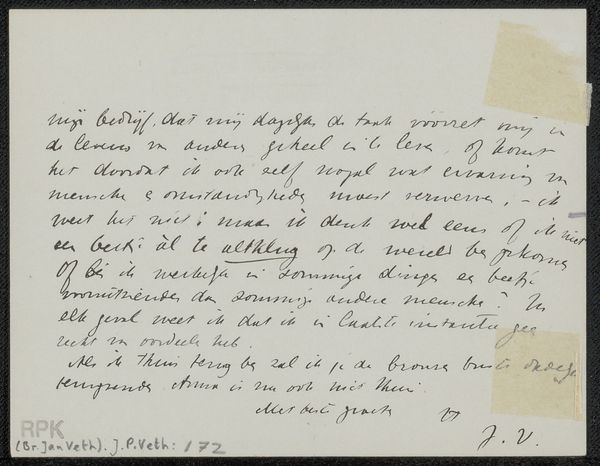 mijn bedrijf, dat mij dagelijks de taak voorzet mij in
de levens van anderen geheel in te leven, of komt
het doordat ik ook zelf nogal wat ervaring van
menschen & omstandigheden moest verwerven, – ik
weet het niet; maar ik denk wel eens of ik niet
een beetje àl te altklug op de wereld ben gekomen
of ben ik werkelijk in sommige dingen een beetje
vooruitziender dan sommige andere menschen? In
elk geval weet ik dat ik in laatste instantie geen
recht van oordeelen heb.
Als ik thuis terug ben zal ik je de bronzen buste
terugzenden. Anna is nu ook niet thuis.
Met beste groeten
J. V.
RPK
(Br. Jan Veth). J.P. Veth: 172